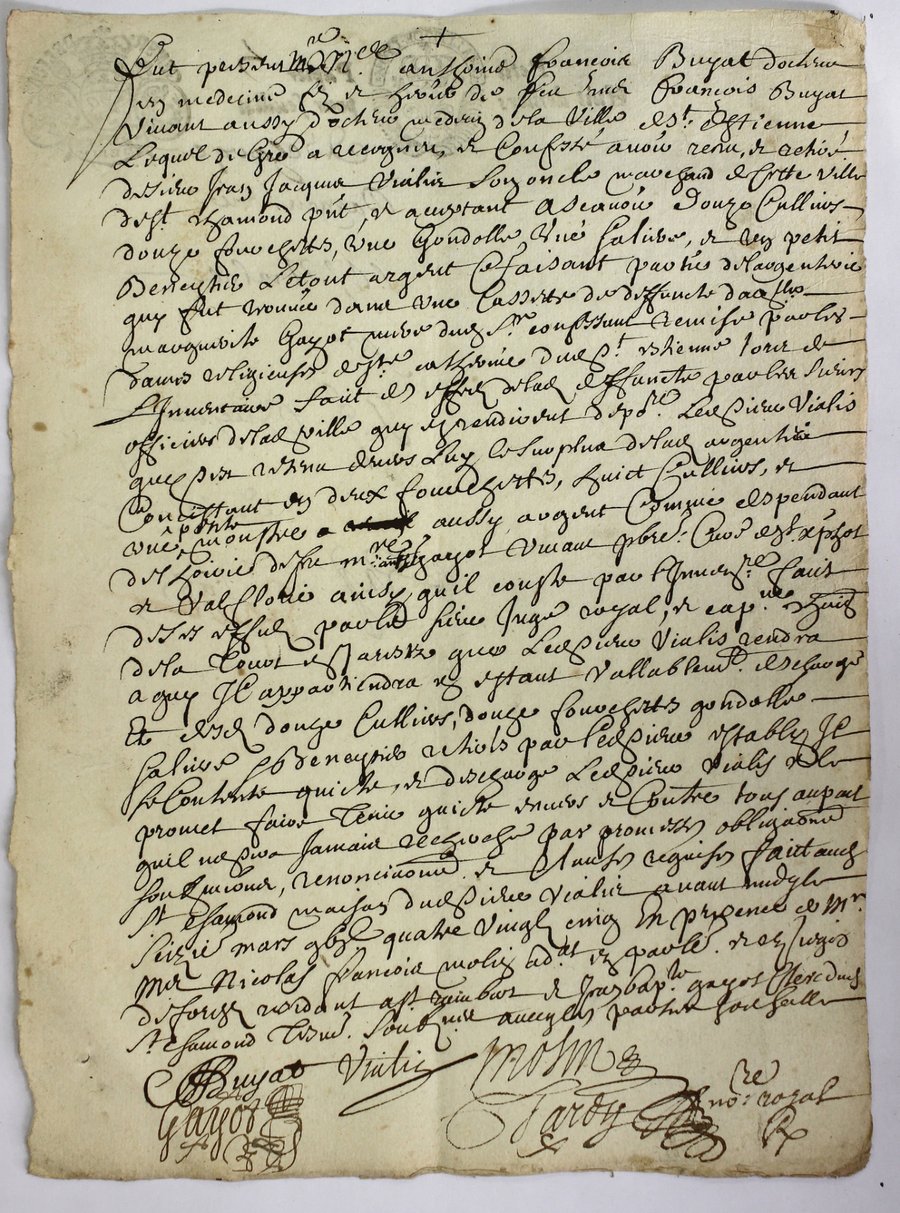 +
Fut present Me anthoine françois Buyat docteur
en medecine fils et heritier de feu françois Buyat
vivant aussy docteur medecin de la ville de St Estienne
Lequel de gré a recogneu, et confessé avoir receu, et retiré
de sieur Jean Jacques Vialis son oncle marchand de cette ville
de St chamond pnt, et acceptant ascavoir douze Cullieres
douze fourchettes, une gondolle une saliere, et un petit
Beneytier Le tout argent et faisant partie de largenterie
quy fut trouvée dans une Cassette de deffuncte dlle
marguerite Gayot mere dud Sr confessant remise par les
dames religieuses de Ste catherine dud St estienne lors de
L'Inventaire fait des effets de lad deffuncte par les sieurs
officiers de lad ville quy en rendirent depre Led sieur Vialis
quy se retint devers Luy le surplus de lad argenterie
Concistant en deux fourchettes, huict Cullieres, et
une petite monstre aussy argent Comme despendant
de L'hoirie de feu mre gayot vivant pbre Curé de St
et Valfleurie ainsy quil conste par L'Invenre fait
de ses effets par le sieur Juge royal, et
de la que Led sieur Vialis rendra
a quy Il appartiendra en estant vallablemt deschargé
Et desd douze Cullieres, douze fourchettes gondolle
saliere et beneytier retirés par led sieur estably Il
se Contente quicte, et descharge Led sieur Vialis et le
promet faire tenir quicte envers et Contre tous
quil ne sera Jamais recherché par promesses obligaons
soubmissions, renonciaons et Clauses requises fait aud
St chamond maison dud sieur Vialis avant midy le
seizie mars gbic quatre vingt cinq En presence de Mr
Me Nicolas françois molin adat en parlt et
de forez residant a St rambert et Jean bapte gayot Clerc dud
St chamond tesms soubnés avec les parties
Buyat Vialis Molin
Gayot Tardy nore royal